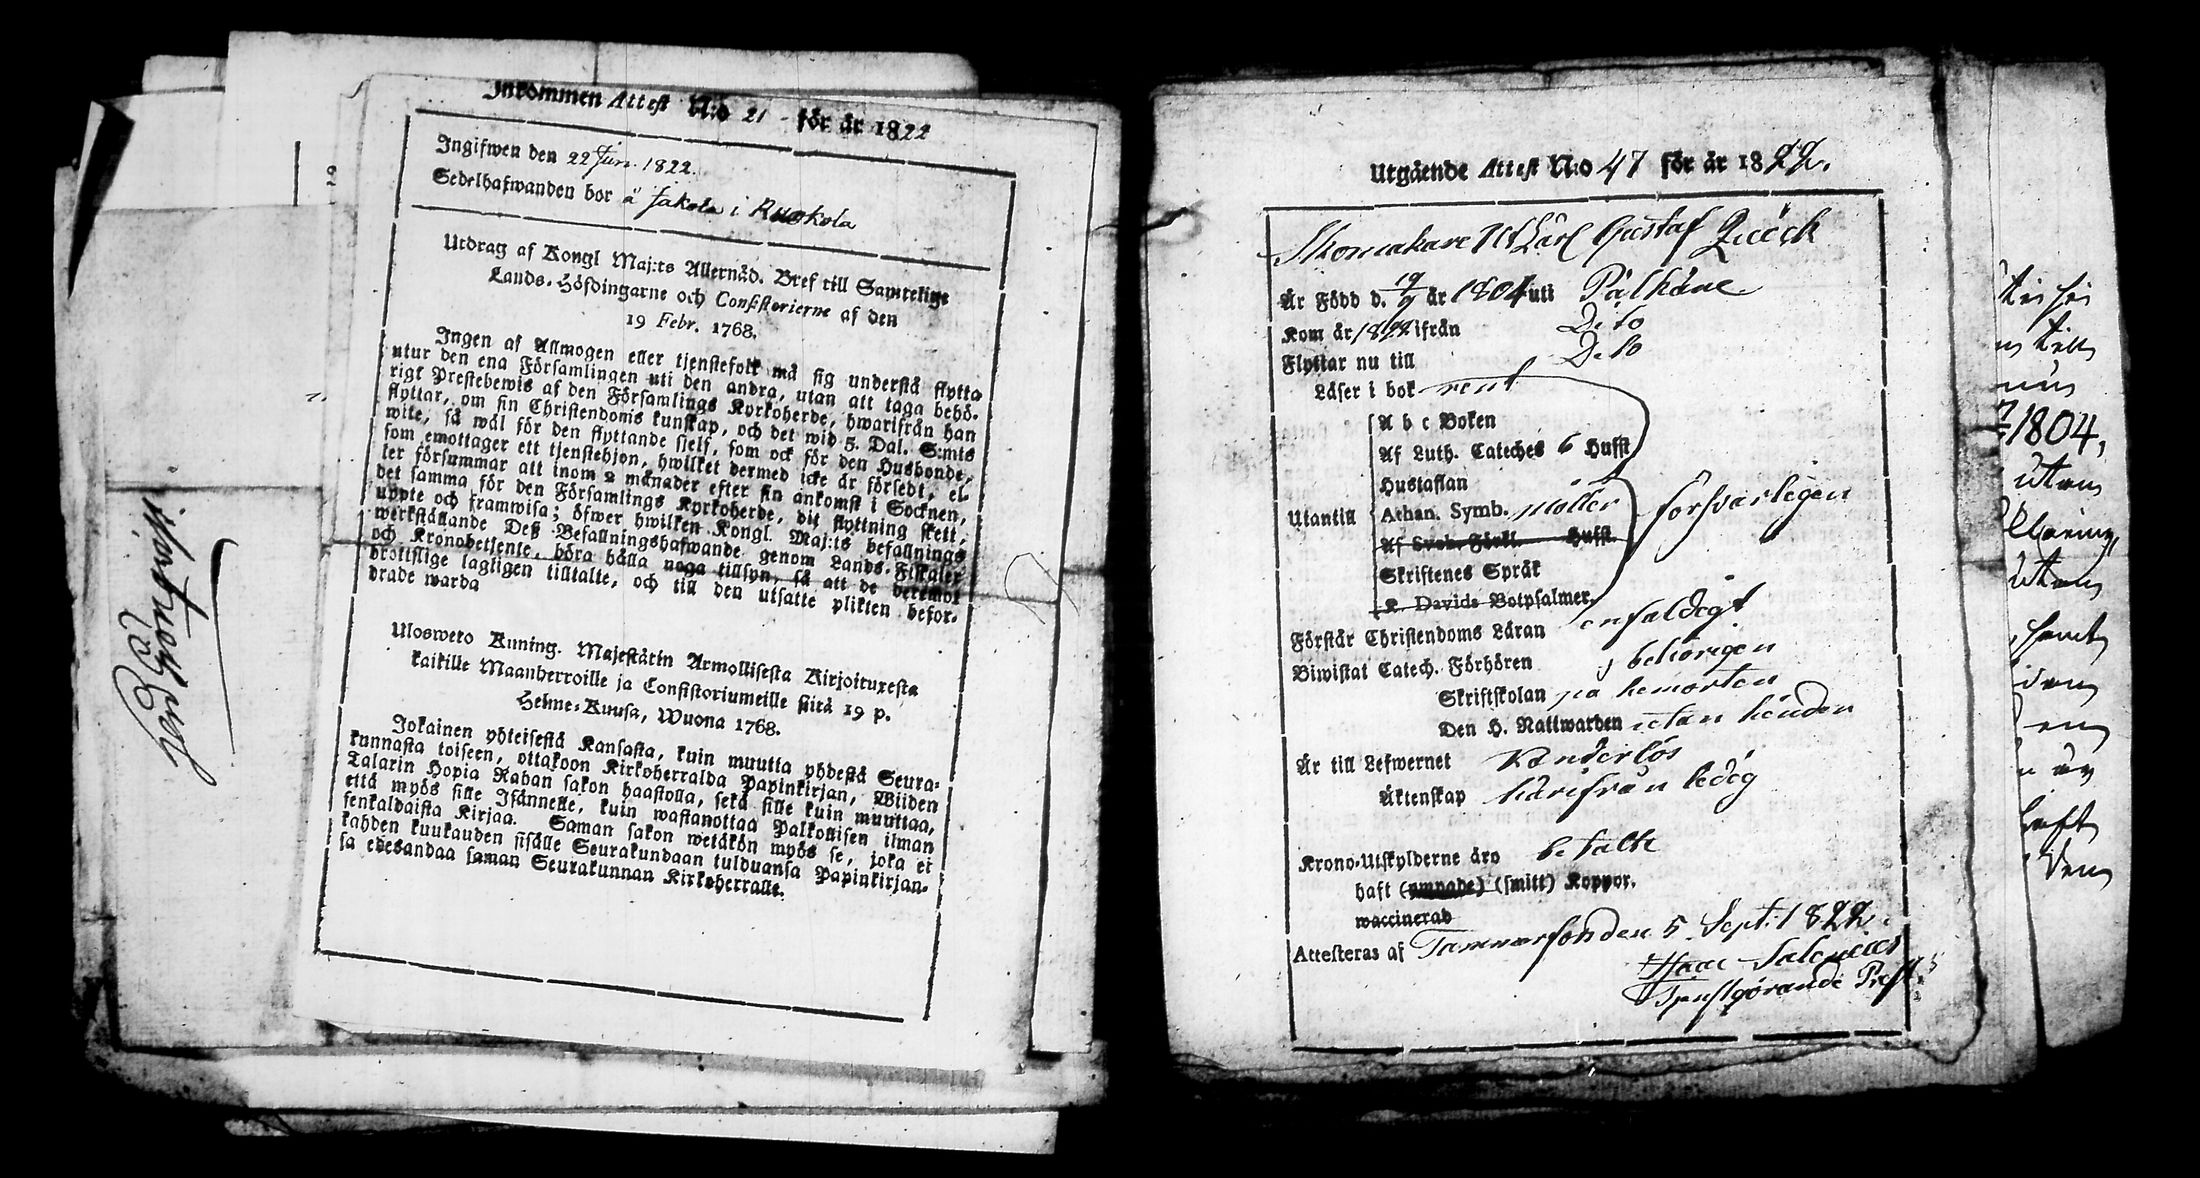 Inkommen Attest N:o 21 för år 1822
Ingifwen den 22 Jun. 1822.
Sedelhafwanden bor å Jakola i Ruokola
Utdrag af Kongl Maj:ts Allernåd. Bref till Samtelige
Lands-Höfdingarne och Consistorierne af den
19 Febr. 1768.
Ingen af Allmogen eller tjenstefolk må sig understå flytta
utur den ena Församlingen uti den andra, utan att taga behö-
rigt Prestebewis af den Församlings Kyrkoherde, hwarifrån han
flyttar, om sin Christendoms kunskap, och det wid 5. Dal. S:mts
wite, så wäl för den flyttande sielf, som ock för den Husbonde,
som emottager ett tjenstehjon, hwilket dermed icke är försedt, el-
ler försummar att inom 2 månader efter sin ankomst i Socknen,
det samma för den Församlings Kyrkoherde, dit flyttning skett,
uppte och framwisa; öfwer hwilken Kongl. Maj:ts befallnings
werkställande Deß Befallningshafwande genom Lands-Fiskaler
och Kronobetjente, böra hålla noga tillsyn, så att de deremot
brottslige lagligen tilltalte, och till den utsatte plikten befor-
drade warda
Ulosweto Kuning. Majestätin Armollisesta Kirjoituxesta
kaikille Maanherroille ja Consistoriumeille siitä 19 p.
Helme-Kuusa, Wuona 1768.
Jokainen yhteisestä Kansasta, kuin muutta yhdestä Seura-
kunnasta toiseen, ottakoon Kirkoherralda Papinkirjan, Wiiden
Talarin Hopia Rahan sakon haastolla, sekä sille kuin muuttaa,
että myös sille Isännelle, kuin wastanottaa Palkollisen ilman
senkaldaista Kirjaa. Saman sakon wetäkön myös se, joka ei
kahden kuukauden sisälle Seurakundaan tulduansa Papinkirjan-
sa edesandaa saman Seurakunnan Kirkoherralle.
Utgående Attest N:o 47 för år 1822.
Skomakare Carl Gustaf Qvöck
Är Född d. 19/9 år 1804 uti Pälkäne
Kom år 1822 ifrån Dito
Flyttar nu till Dito
Läser i bok rent
A b c Boken
Af Luth. Cateches 6 Hufst
Hustaflan
Utantill Athan. Symb. Möller försvarligen
Af Sveb. Förkl. Hufst.
Skriftenes Språk
K. Davids Botpsalmer.
Förstår Christendoms Läran enfaldigt
Biwistat Catech. Förhören behörigen
Skriftskolan på hemorten
Den H. Nattwarden utan hinder
Är till Lefwernet klanderlös
Äktenskap härifrån ledig
Krono-Utskylderne äro betalte
haft (ympade) (smitt) Koppor.
waccinerad
Attesteras af Tammerfors den 5 Sept. 1822.
Isaac Salenius
Tjenstgörande Prest
1804,
utan
utan